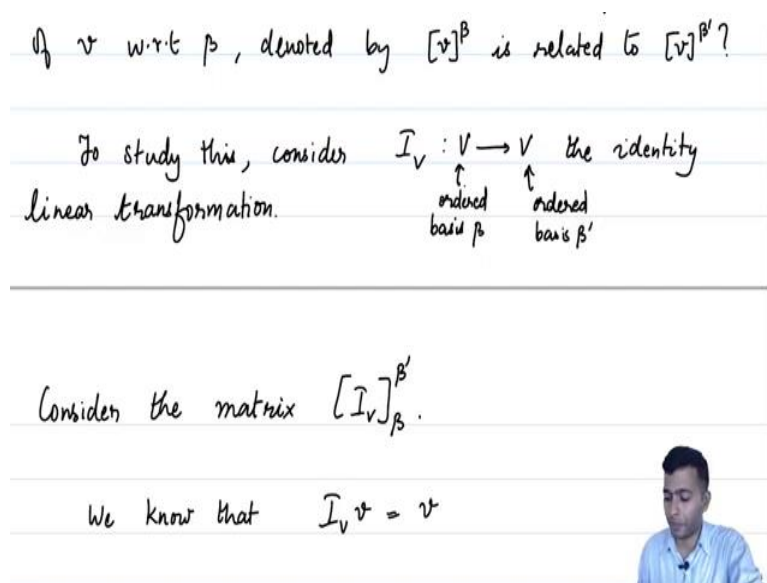 of v w.r.t β, denoted by [v]^β is related to [v]^β'?
To study this, consider I_V : V → V the identity
↑ ↑
linear transformation. ordered basis β ordered basis β'
Consider the matrix [I_V]_β^β'.
We know that I_V v = v